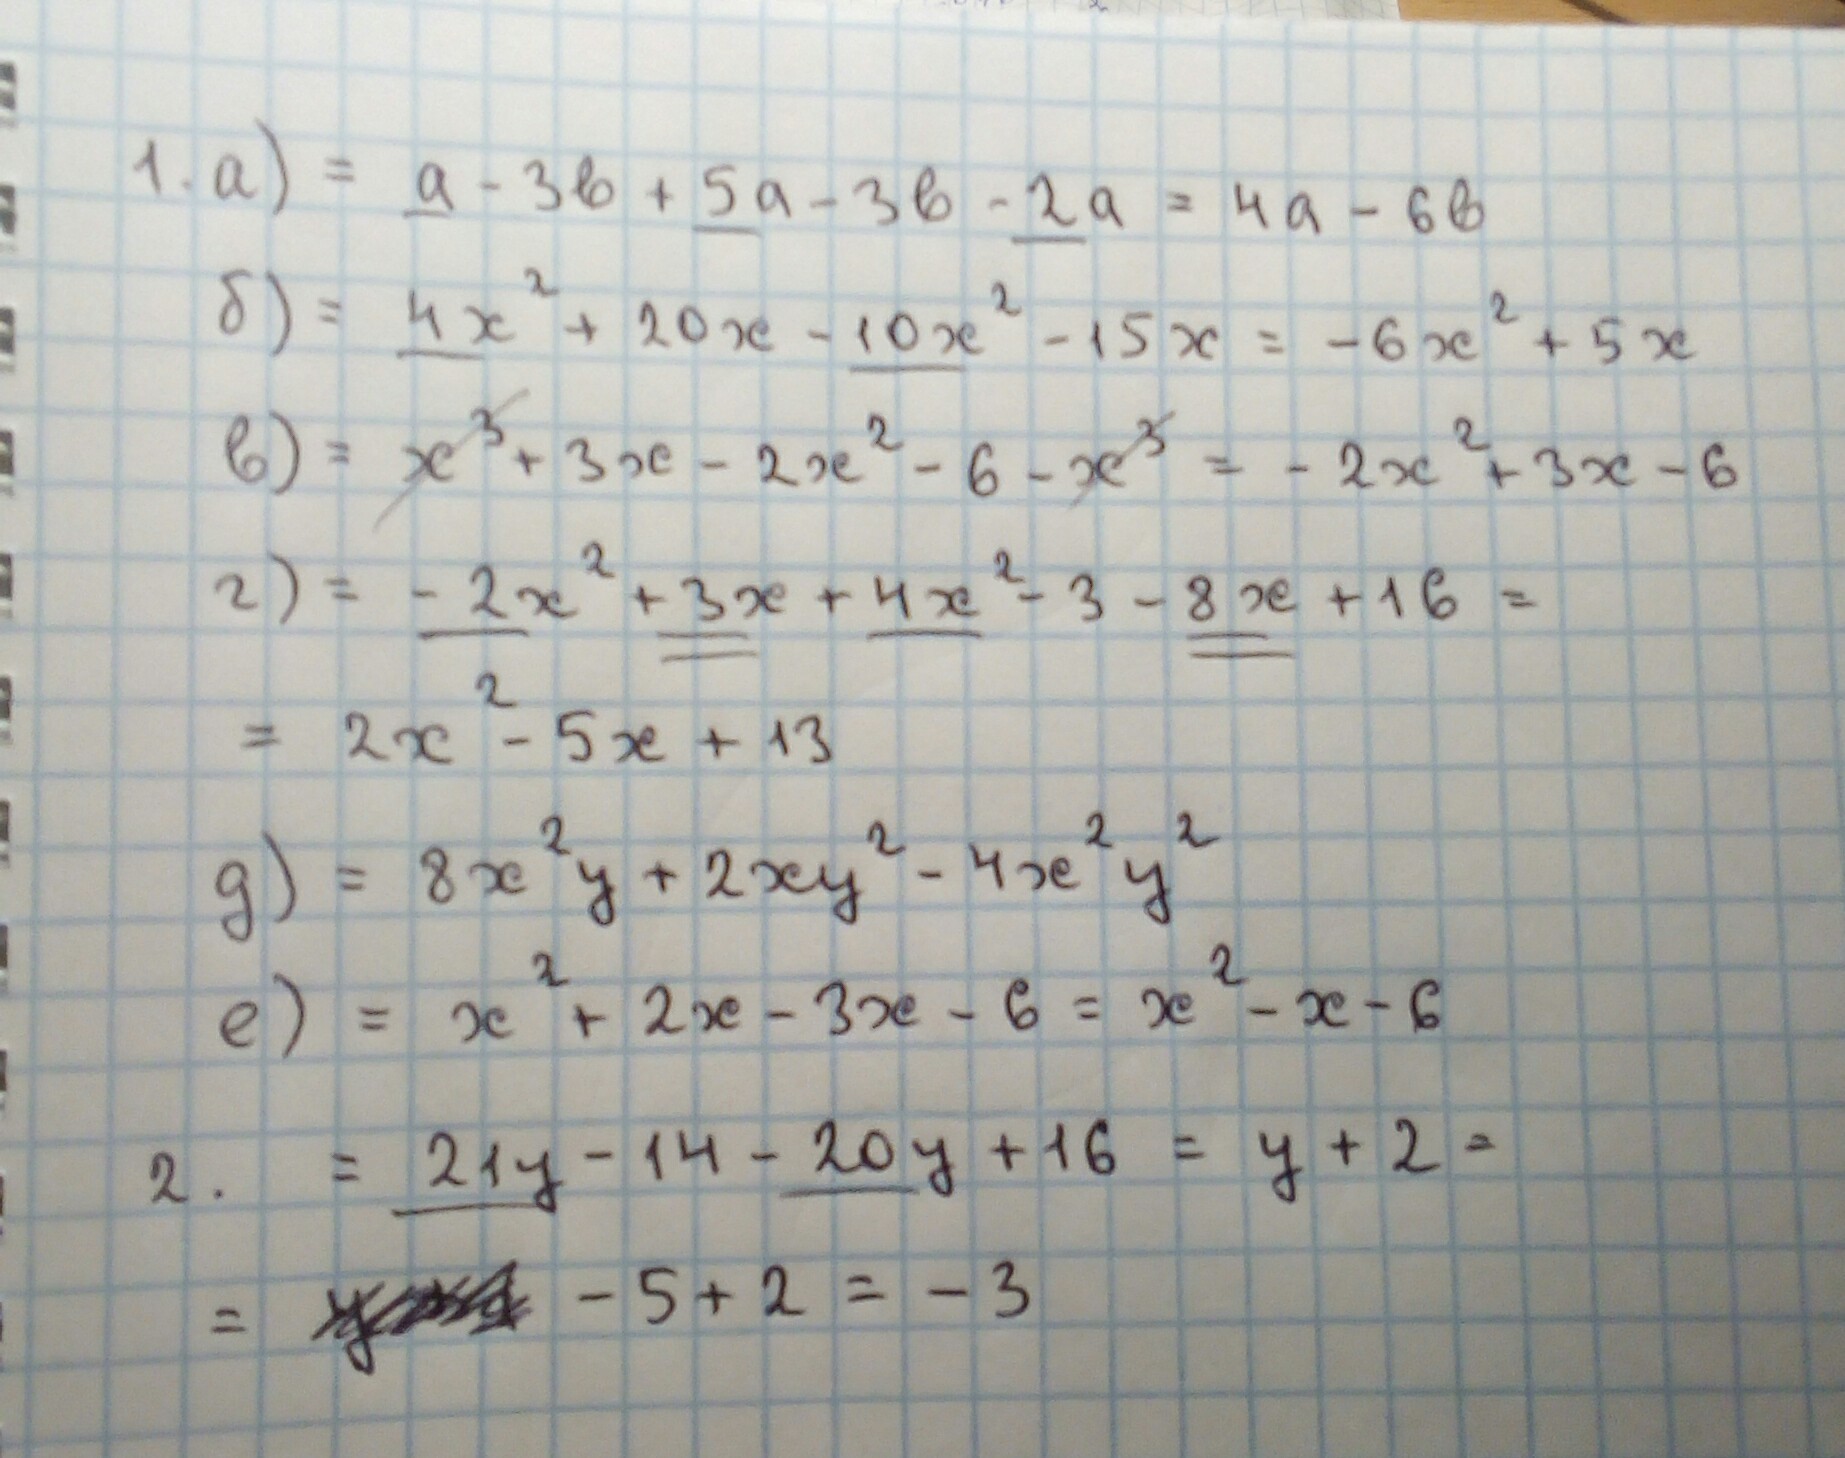 1. а) = a - 3b + 5a - 3b - 2a = 4a - 6b
б) = 4x² + 20x - 10x² - 15x = -6x² + 5x
в) = x³ + 3x - 2x² - 6 - x³ = - 2x² + 3x - 6
г) = - 2x² + 3x + 4x² - 3 - 8x + 16 =
= 2x² - 5x + 13
д) = 8x²y + 2xy² - 4x²y²
е) = x² + 2x - 3x - 6 = x² - x - 6
2. = 21y - 14 - 20y + 16 = y + 2 =
= - 5 + 2 = - 3